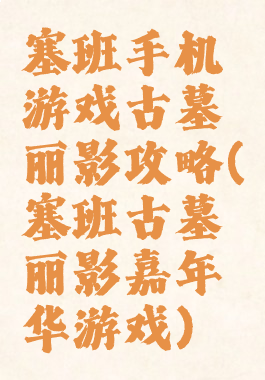 塞班手机
游戏古墓
丽影攻略(
塞班古墓
丽影嘉年
华游戏)